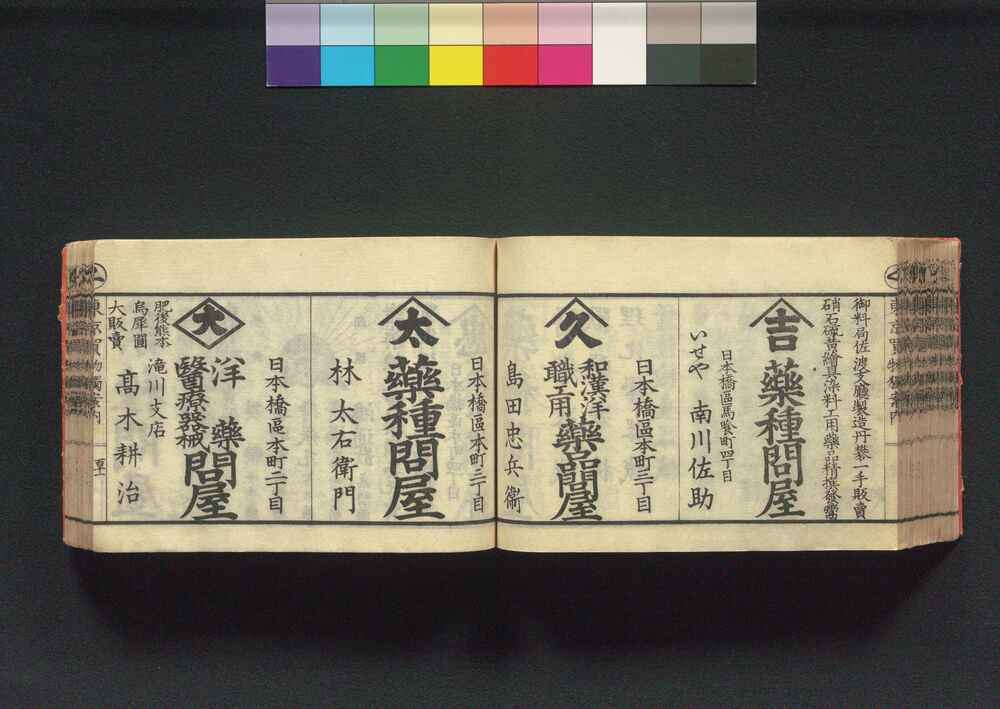 御料局佐渡支廳製造丹礬一手販賣
硝石硫黄繪具染料工用藥品精撰發鬻
吉
藥種問屋
日本橋區馬喰町四丁目
いせや 南川佐助
日本橋區本町三丁目
久
和漢洋藥品問屋
職工用
島田忠兵衞
日本橋區本町三丁目
太
藥種問屋
林太右衛門
日本橋區本町二丁目
大
洋藥
醫療器械
問屋
肥後熊本
烏犀圓
大販賣
滝川支店
髙木耕治
東京買物獨案内